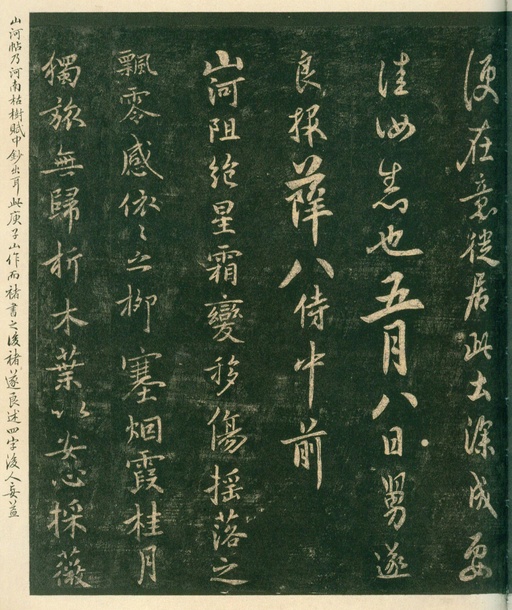 便在意徙居此土深成要
佳汝悉也五月八日舅遂
良報薛八侍中前
山河阻絶星霜變移傷摇落之
飄零感依〻之柳塞烟霞桂月
獨旅無歸折木葉以安心採薇
山河帖乃河南枯樹賦中鈔出耳此庾子山作而褚書之後褚遂良述四字後人妄益